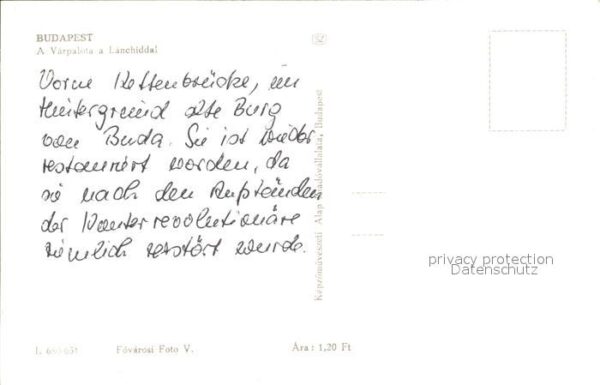 BUDAPEST
A Várpalota a Lánchíddal
Vorne Kettenbrücke, im
Hintergrund alte Burg
von Buda. Sie ist wieder
restauriert worden, da
sie nach den Aufständen
der Konterrevolutionäre
ziemlich zerstört wurde.
Képzőművészeti Alap Kiadóvállalata, Budapest
privacy protection
Datenschutz
Fővárosi Foto V.
Ára: 1,20 Ft